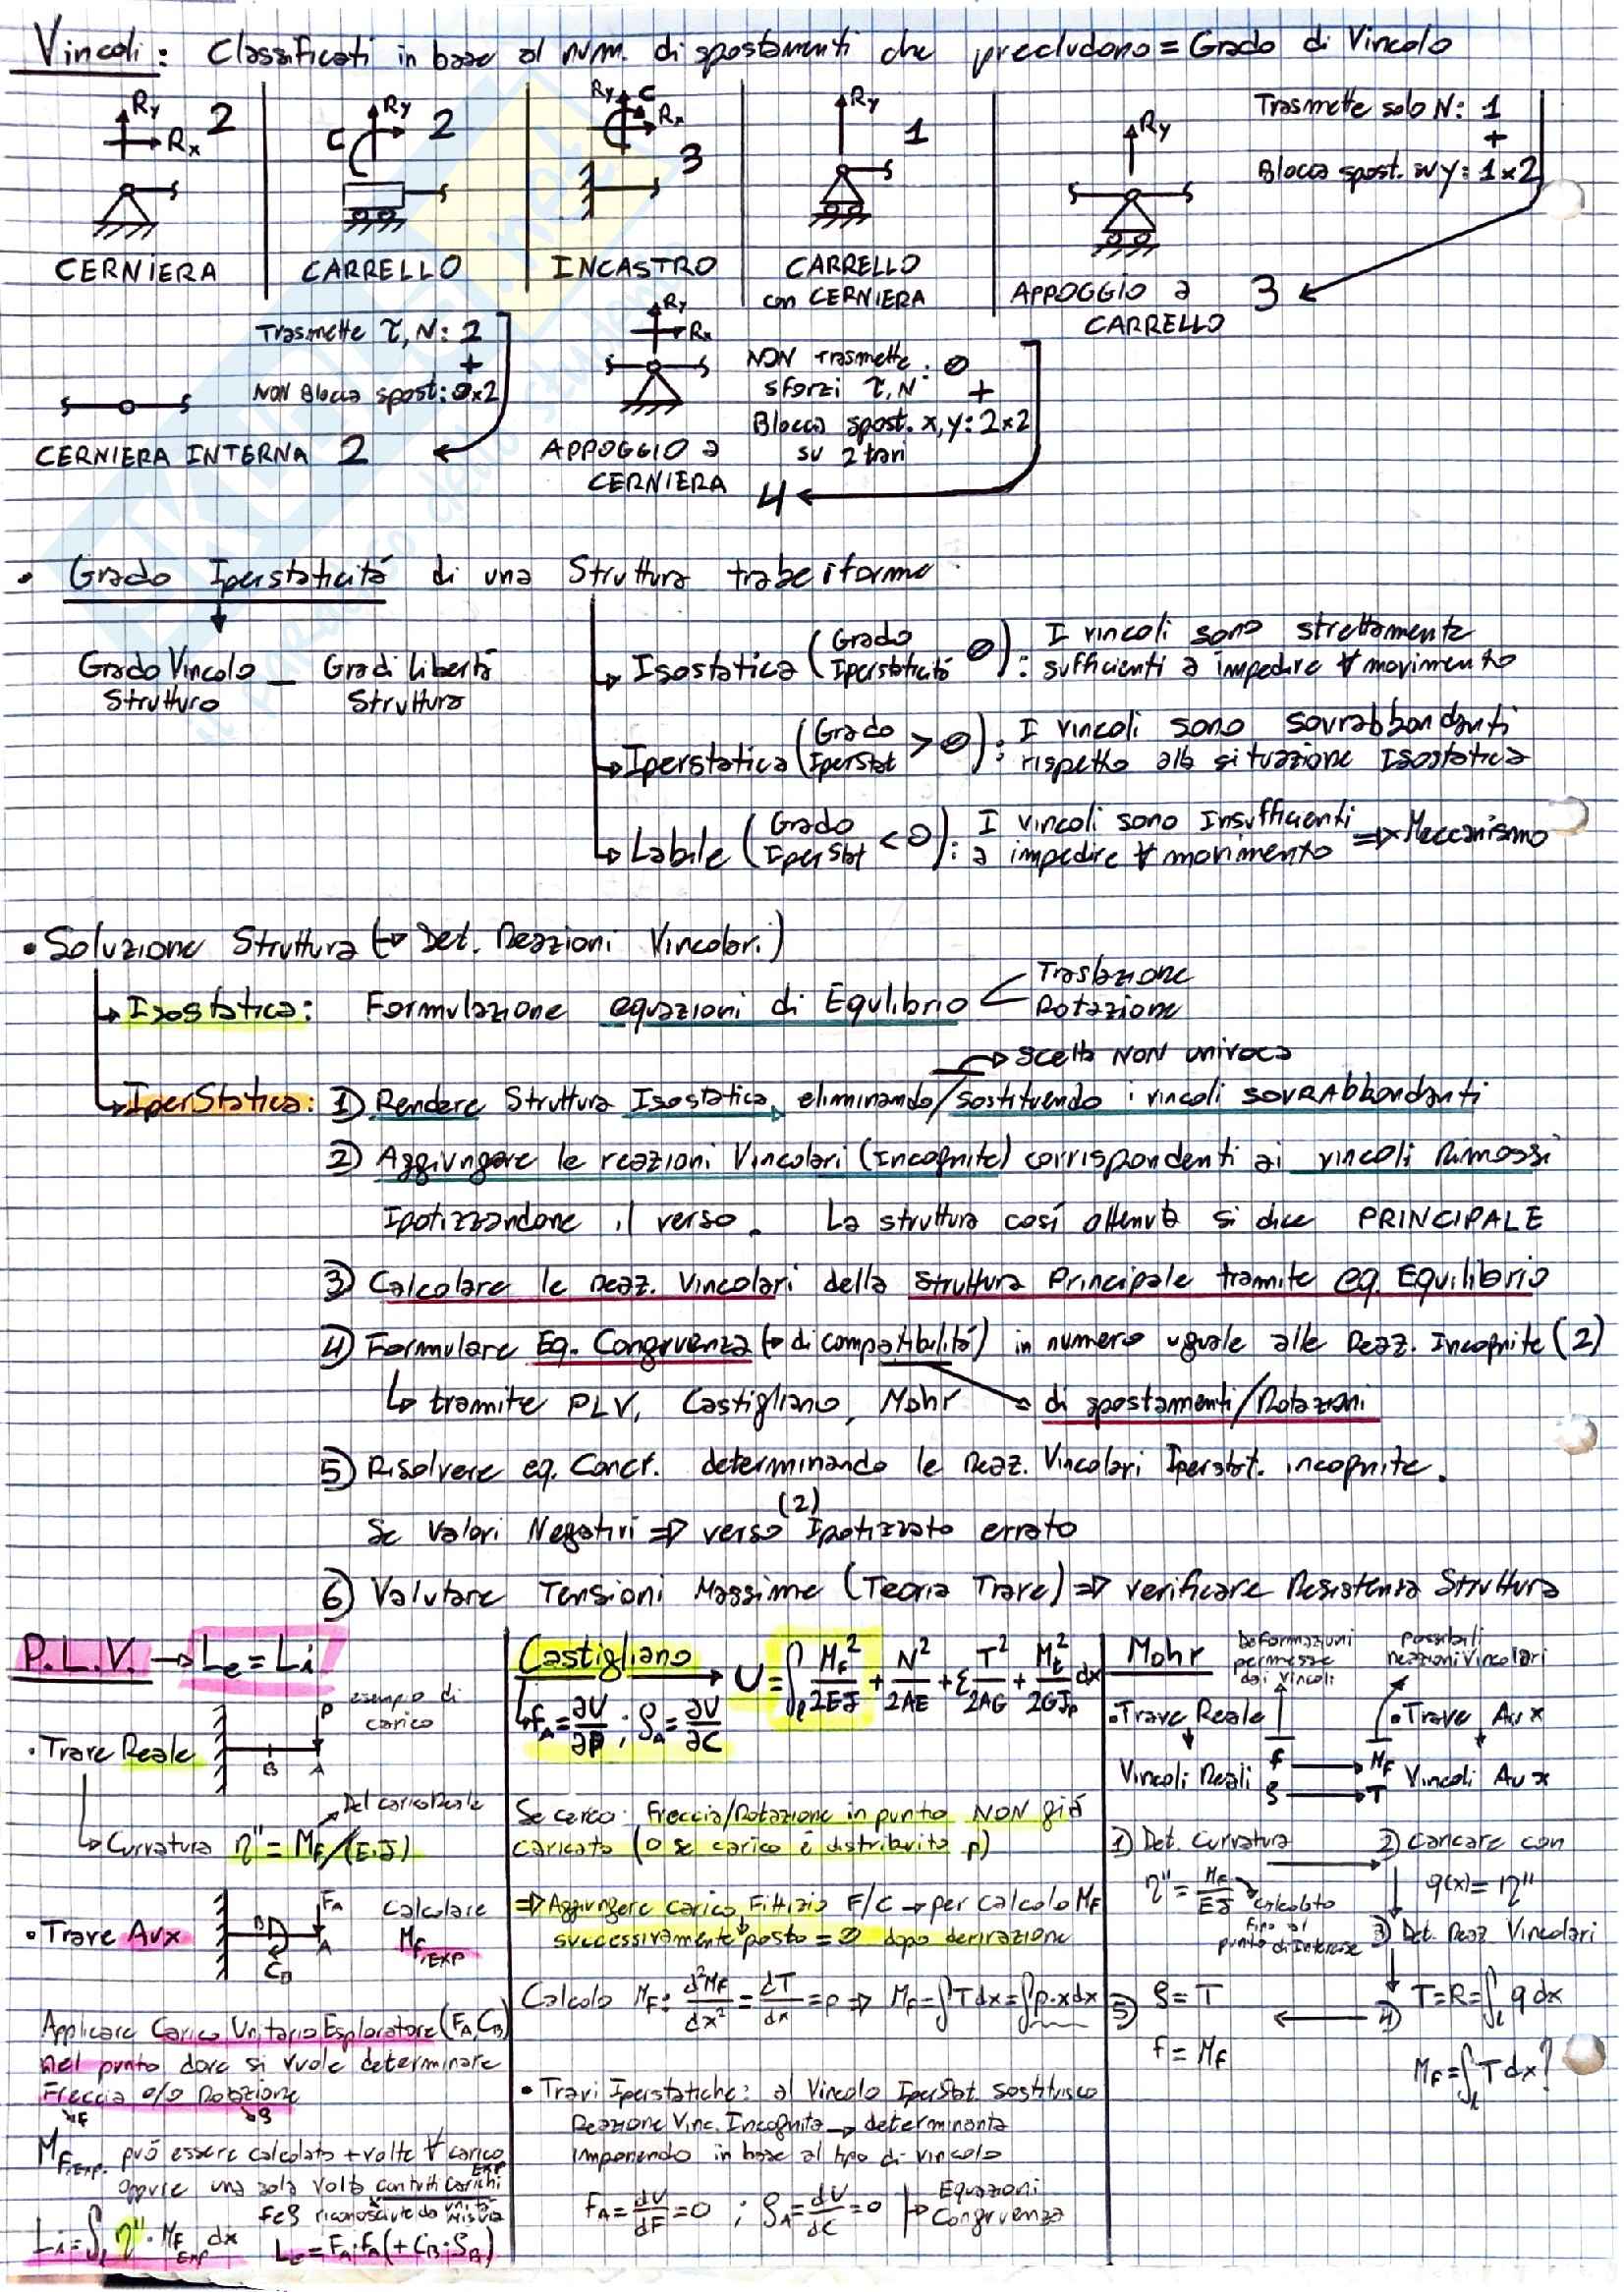 Vincoli: Classificati in base al num. di spostamenti che precludono = Grado di Vincolo
Ry Rx 2
CERNIERA
C Ry 2
CARRELLO
Ry C Rx 3
INCASTRO
Ry 1
CARRELLO
con CERNIERA
Ry
APPOGGIO a
CARRELLO
Trasmette solo N: 1
+
Blocca spost. in y: 1x2
3
Trasmette τ, N: 2
+
NON Blocca spost: 0x2
CERNIERA INTERNA 2
Ry Rx
APPOGGIO a
CERNIERA
NON trasmette
sforzi τ, N : 0
+
Blocca spost. x,y: 2x2
su 2 travi
4
• Grado Iperstaticitá di una Struttura trabeiforme
Grado Vincolo Struttura — Gradi Libertá Struttura
Isostatica (Grado Iperstaticitá 0): I vincoli sono strettamente
sufficienti a impedire ∀ movimento
Iperstatica (Grado IperStat > 0): I vincoli sono sovrabbondanti
rispetto alla situazione Isostatica
Labile (Grado IperStat < 0): I vincoli sono Insufficienti
a impedire ∀ movimento ⇒ Meccanismo
• Soluzione Struttura (→ Det. Reazioni Vincolari)
Isostatica: Formulazione equazioni di Equlibrio
Traslazione
Rotazione
→ Scelta NON univoca
IperStatica: 1) Rendere Struttura Isostatica, eliminando/sostituendo i vincoli SOVRAbbondanti
2) Aggiungere le reazioni Vincolari (Incognite) corrispondenti ai vincoli Rimossi
Ipotizzandone il verso. La struttura cosí ottenuta si dice PRINCIPALE
3) Calcolare le Reaz. Vincolari della Struttura Principale tramite eq. Equilibrio
4) Formulare Eq. Congruenza (→ di compatibilitá) in numero uguale alle Reaz. Incognite (2)
↳ tramite PLV, Castigliano, Mohr → di spostamenti/Rotazioni
5) Risolvere eq. Congr. determinando le Reaz. Vincolari Iperstat. incognite.
Se Valori Negativi ⇒ verso (2) Ipotizzato errato
6) Valutare Tensioni Massime (Teoria Trave) ⇒ verificare Resistenza Struttura
P.L.V. → Le = Li
esempio di
carico
P
B A
• Trave Reale
Del carico Reale
↳ Curvatura η'' = MF/(E·J)
FA
B A
CB
• Trave Aux
Calcolare
MF,EXP
Applicare Carico Unitario Esploratore (FA, CB)
nel punto dove si vuole determinare
Freccia e/o Rotazione
→f →ϱ
MF,EXP. puó essere calcolato + volte ∀ carico EXP
oppure una sola volta con tutti carichi
f e ϱ riconosciute da unitá misura
Li = ∫l η'' · MF EXP dx Le = FA·fA (+ CB·ϱB)
Castigliano → U = ∫l MF²/2EJ + N²/2AE + ξ T²/2AG + Mt²/2GJp dx
↳ fA = ∂U/∂P ; ϱA = ∂U/∂C
Se cerco: Freccia/Rotazione in punto NON giá
caricato (o se carico é distribuito p)
⇒ Aggiungere carico Fittizio F/C → per calcolo MF
successivamente posto = 0 dopo derivazione
Calcolo MF: d²MF/dx² = dT/dx = p ⇒ MF = ∫T dx = ∫p·x dx
• Travi Iperstatiche: al Vincolo IperStat. sostituisco
Reazione Vinc. Incognita → determinanta
imponendo in base al tipo di vincolo
FA = dU/dF = 0 ; ϱA = dU/dC = 0
Equazioni
Congruenza
Mohr
Deformazioni
permesse
dai vincoli
Possibili
reazioni Vincolari
• Trave Reale
• Trave Aux
Vincoli Reali
f → MF
ϱ → T
Vincoli Aux
1) Det. Curvatura
η'' = MF/EJ
calcolato
fino al
punto di Interesse
2) Caricare con
q(x) = η''
3) Det. Reaz Vincolari
4) T = R = ∫l q dx
MF = ∫l T dx?
5) ϱ = T
f = MF